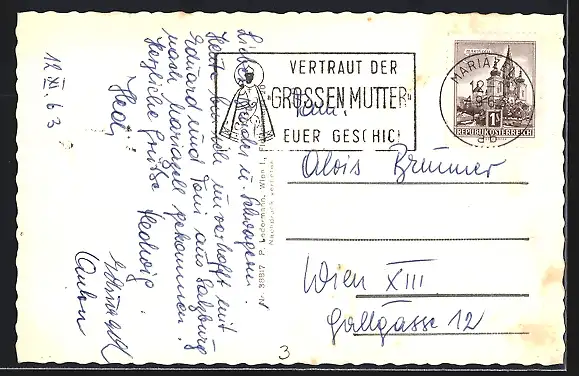 12.XI.63
Lieber Bruder u. Schwägerin!
Heute sind ich unverhofft mit
Eduard und Toni aus Salzburg
nach Mariazell gekommen.
Herzliche Grüße Hedwig
Hedi
Eduard
Anton
VERTRAUT DER
„GROSSEN MUTTER“
EUER GESCHICK
MARIAZELL
12.
REPUBLIK ÖSTERREICH
1S
Fam.
Alois Brunner
Wien XIII
Gallgasse 12
Nr. 38817 P. Ledermann, Wien I.,
Nachdruck verboten
3